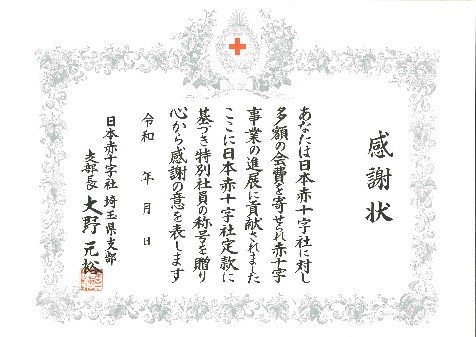 感謝状
あなたは日本赤十字社に対し
多額の会費を寄せられ赤十字
事業の進展に貢献されました
ここに日本赤十字社定款に
基づき特別社員の称号を贈り
心から感謝の意を表します
令和　年　月　日
日本赤十字社 埼玉県支部
支部長 大野元裕